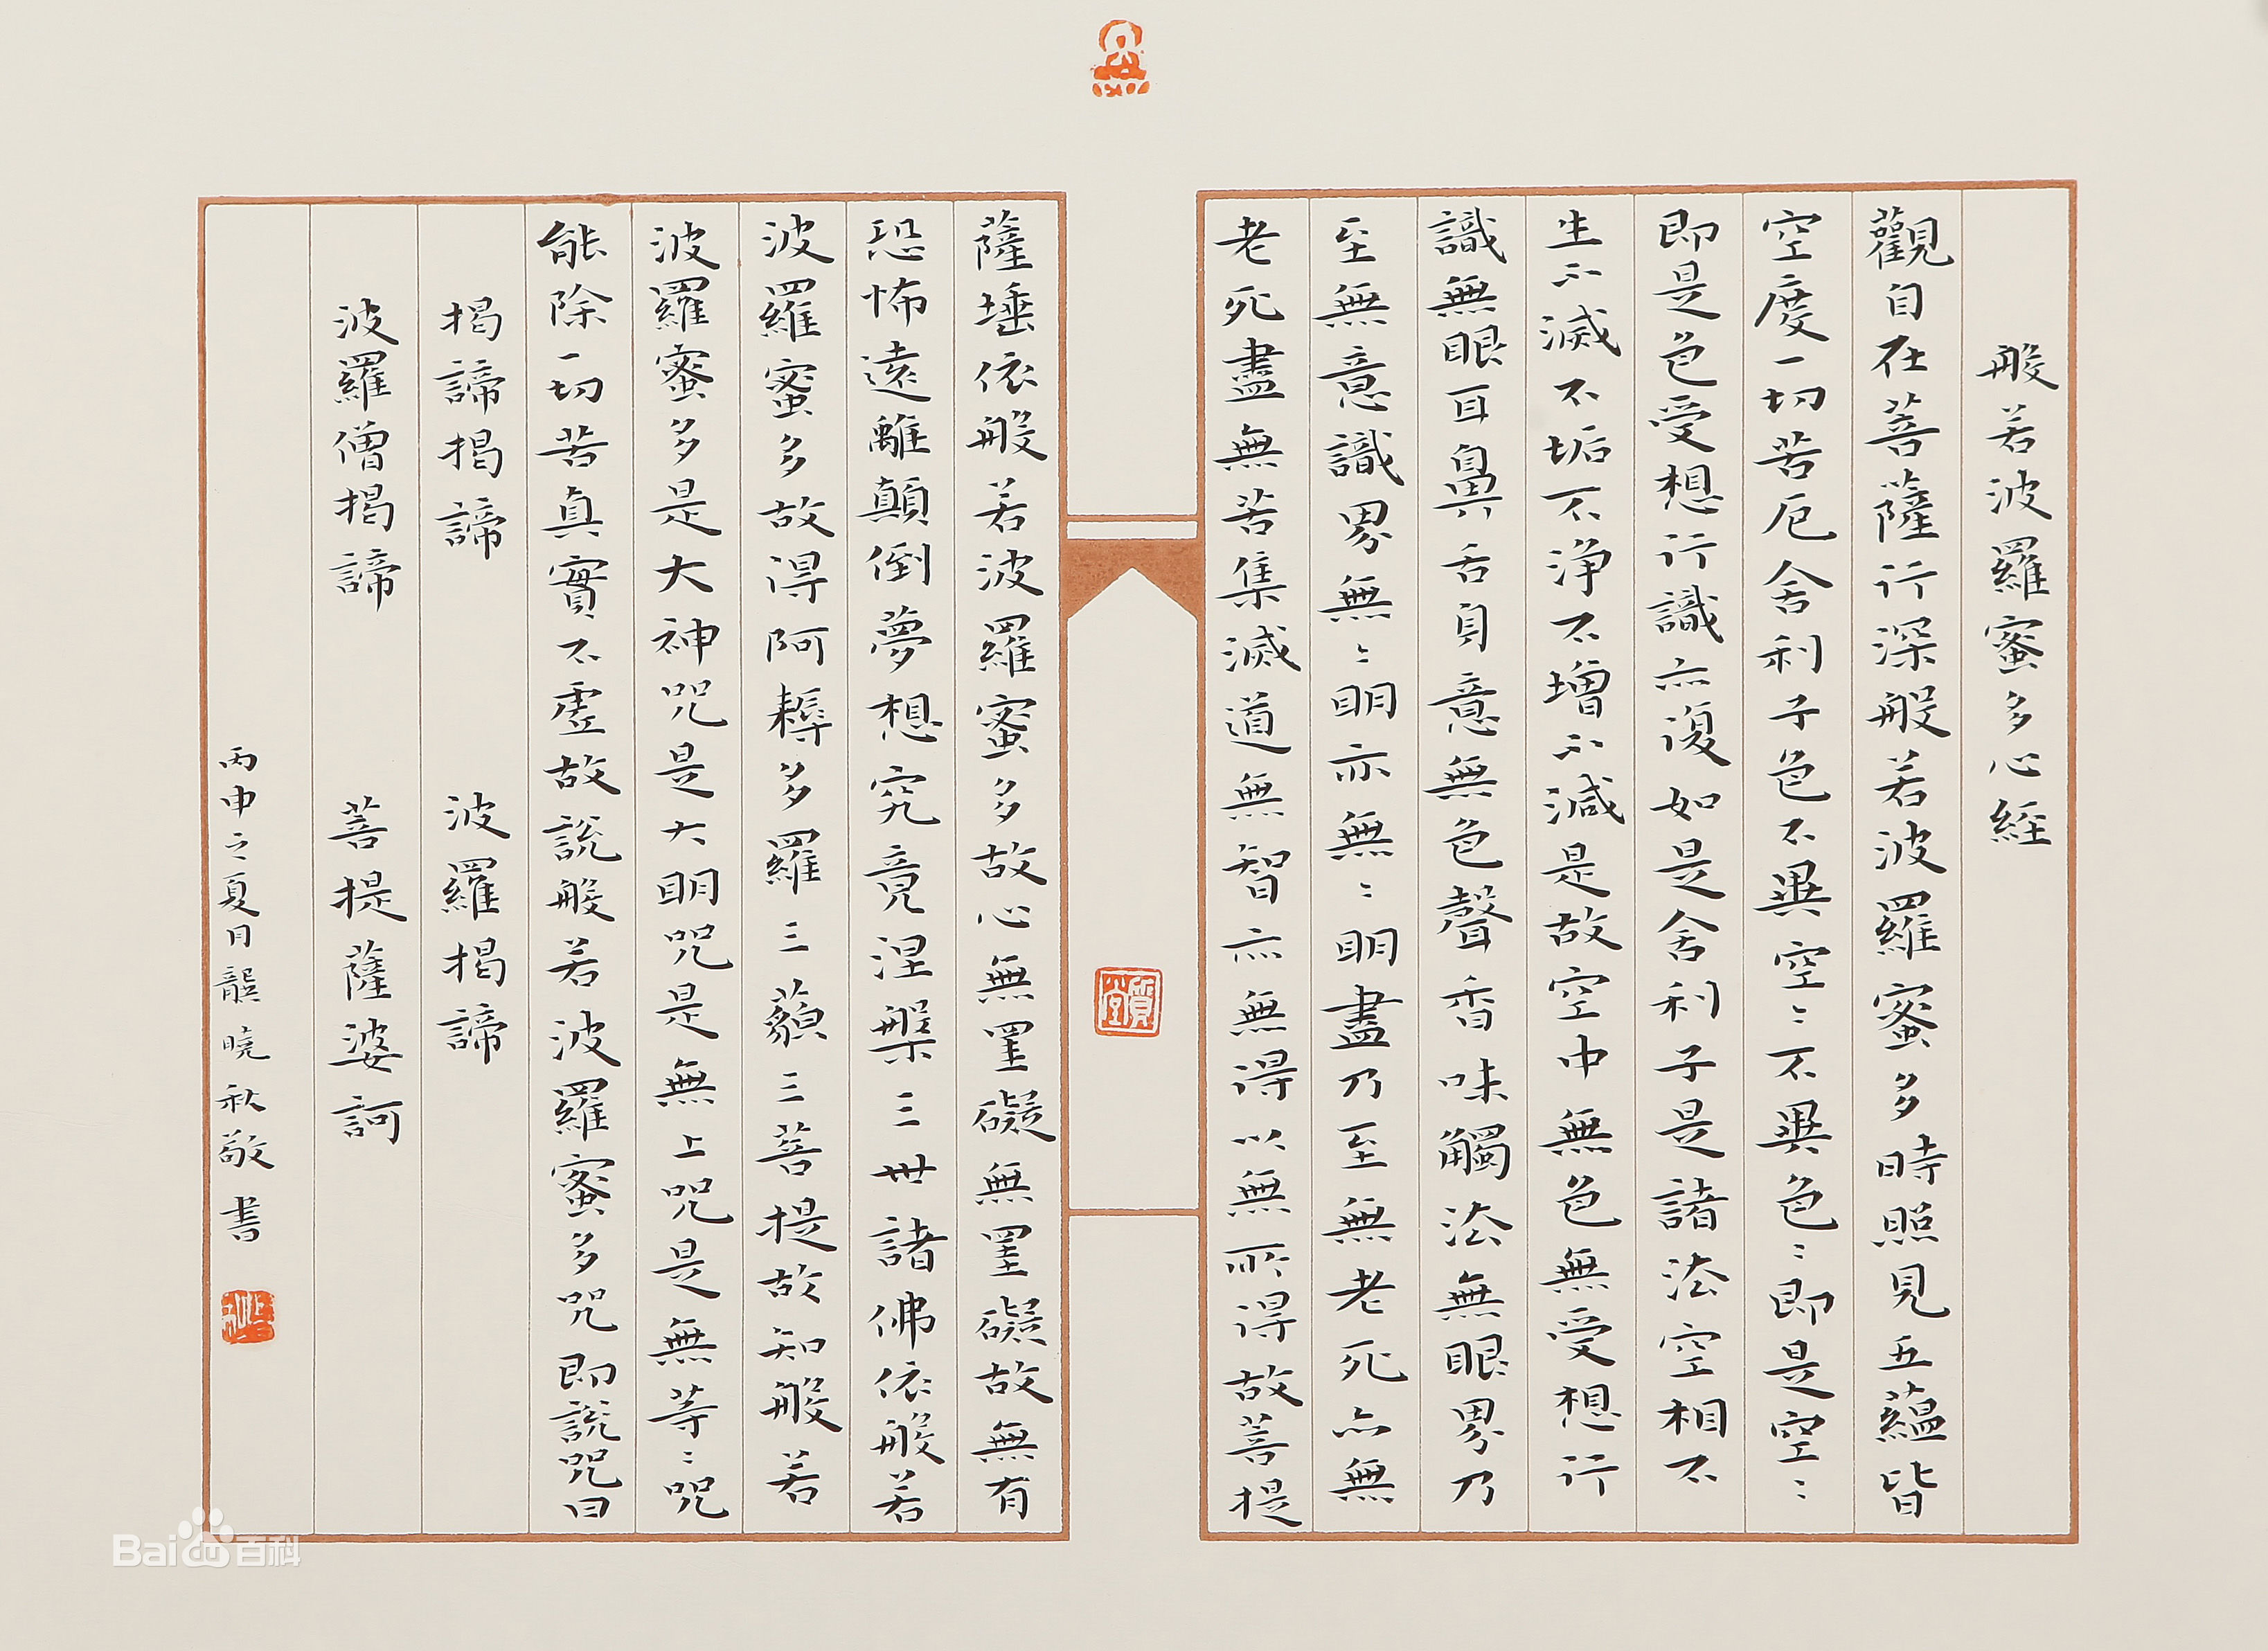 般若波羅蜜多心經
觀自在菩薩行深般若波羅蜜多時照見五蘊皆
空度一切苦厄舍利子色不異空〻不異色〻即是空〻
即是色受想行識亦復如是舍利子是諸法空相不
生不滅不垢不淨不增不減是故空中無色無受想行
識無眼耳鼻舌身意無色聲香味觸法無眼界乃
至無意識界無〻明亦無〻明盡乃至無老死亦無
老死盡無苦集滅道無智亦無得以無所得故菩提
薩埵依般若波羅蜜多故心無罣礙無罣礙故無有
恐怖遠離顛倒夢想究竟涅槃三世諸佛依般若
波羅蜜多故得阿耨多羅三藐三菩提故知般若
波羅蜜多是大神咒是大明咒是無上咒是無等〻咒
能除一切苦真實不虛故說般若波羅蜜多咒即說咒曰
揭諦揭諦 波羅揭諦
波羅僧揭諦 菩提薩婆訶
丙申之夏月龍曉秋敬書
質堂
Baidu百科